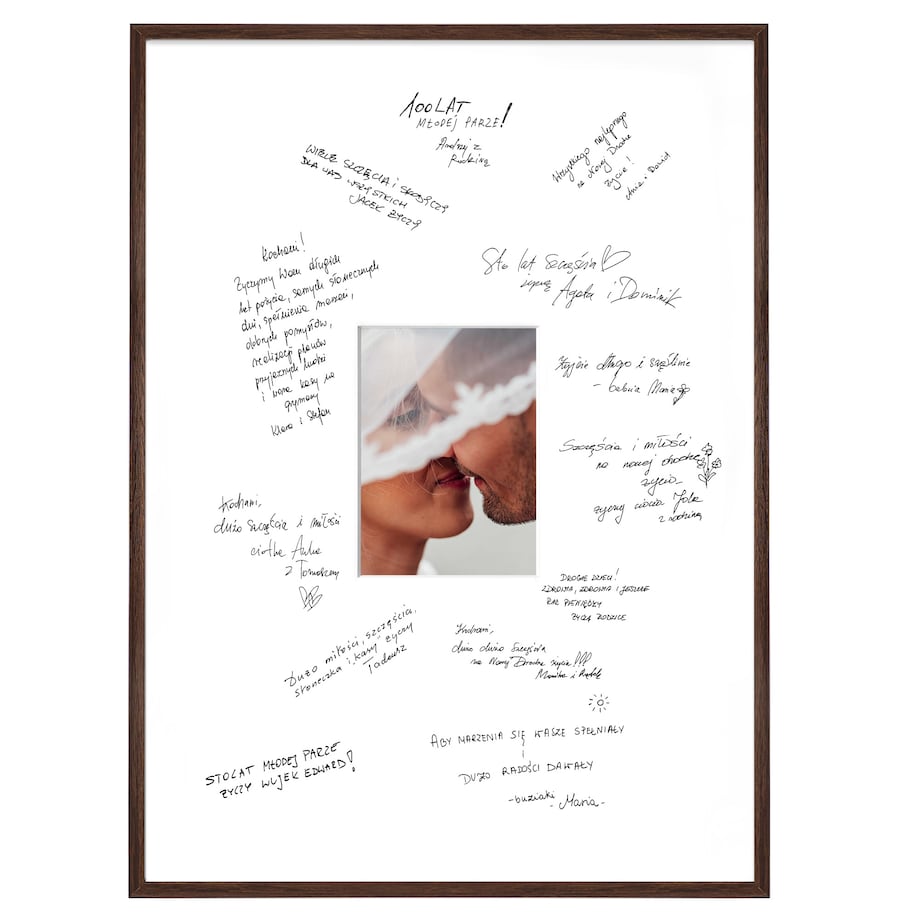 100 LAT
MŁODEJ PARZE!
Andrzej z
Rodziną
WIELE SZCZĘŚCIA I SŁODYCZY
DLA WAS WSZYSTKICH
JACEK ŻYCZY
Wszystkiego najlepszego
na Nowej Drodze
życia!
Ania i Dawid
Kochani!
Życzymy Wam długich
lat pożycia, samych słonecznych
dni, spełnienia marzeń,
dobrych pomysłów,
realizacji planów
przyjaznych ludzi
i wora kasy na
Klara i Stefan
Sto lat Szczęścia
życzą Agata i Dominik
Żyjcie długo i szczęśliwie
- babcia Maria
Szczęścia i miłości
na nowej drodze
życia
życzy ciocia Jola
z rodziną
Kochani,
dużo szczęścia i miłości
ciotka Anka
z Tomaszem
DROGIE DZIECI!
ZDROWIA, ZDROWIA I JESZCZE
RAZ PIENIĘDZY
ŻYCZĄ RODZICE
Kochani,
dużo dużo Szczęścia
na Nowej Drodze życia!!!
Monika i
Dużo miłości, szczęścia,
słoneczka i "kasy" życzy
Tadeusz
STO LAT MŁODEJ PARZE
ŻYCZY WUJEK EDWARD!
ABY MARZENIA SIĘ WASZE SPEŁNIAŁY
i
DUŻO RADOŚCI DAWAŁY
-buziaki
- Maria-